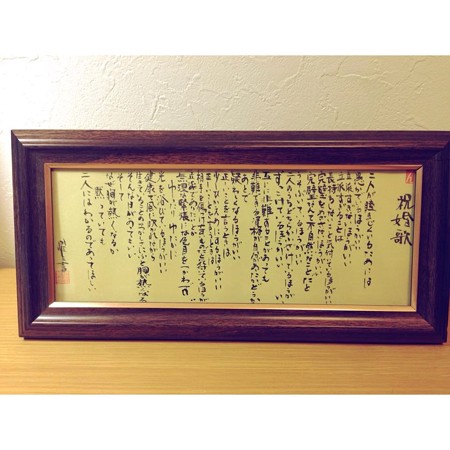 祝婚歌
二人が睦まじくいるためには
愚かでいるほうがいい
立派すぎないほうがいい
立派すぎることは
長持ちしないことだと気付いているほうがいい
完璧をめざさないほうがいい
完璧なんて不自然なことだと
うそぶいているほうがいい
二人のうちどちらかがふざけているほうがいい
ずっこけているほうがいい
互いに非難することがあっても
非難できる資格が自分にあったかどうか
あとで
疑わしくなるほうがいい
正しいことを言うときは
少しひかえめにするほうがいい
正しいことを言うときは
相手を傷つけやすいものだと気付いているほうがいい
立派でありたいとか
無理な緊張には色目を使わず
ゆったり ゆたかに
光を浴びているほうがいい
健康で風に吹かれながら
生きていることのなつかしさにふと胸が熱くなる
そんな日があってもいい
そして
なぜ胸が熱くなるのか
黙っていても
二人にはわかるのであってほしい